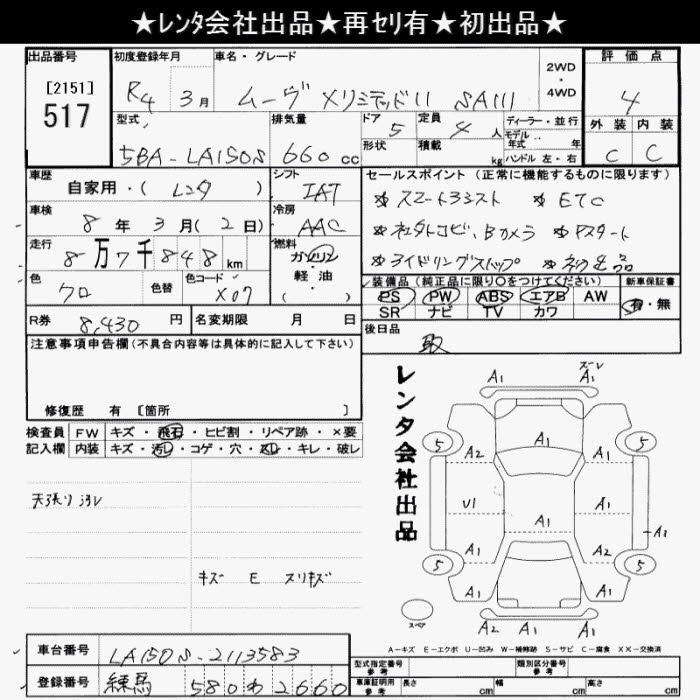 ★レンタ会社出品★再セリ有★初出品★
出品番号 初度登録年月 車名・グレード 評価点
[2151]
517
R4 3月 ムーヴ XリミテッドII SAIII 2WD・4WD 4
型式 排気量 ドア 定員 ディーラー・並行 外装 内装
5 4人 モデル年式 年
5BA-LA150S 660cc 形状 積載 kg ハンドル 左・右 C C
車歴 シフト セールスポイント(正常に機能するものに限ります)
自家用・(レンタ) IAT
車検 冷房 スマートアシスト ETC
8年3月(2日) AAC ネェタトコビ、Bカメラ Pスタート
走行 燃料
8万7千848km ガソリン・軽油・( ) アイドリングストップ 初出品
色 色替 色コード 装備品(純正品に限り○をつけてください) 新車保証書
クロ X07 PS PW ABS エアB AW 有・無
SR ナビ TV カワ
R券 8,430円 名変期限 月 日 後日品
取
注意事項申告欄(不具合内容等は具体的に記入して下さい)
修復歴 有 [箇所 ]
検査員 FW キズ・飛石・ヒビ割・リペア跡・×要
記入欄 内装 キズ・汚レ・コゲ・穴・スレ・キレ・破レ
天張り汚レ
キズ E スリキズ
レンタ会社出品
A1 ズレ A1
5 A1 5
A2 A1
U1 A1
A1 A1
A1 A2
5 5
A1 A1
スペア A2 A1 A1
A-キズ E-エクボ U-凹み W-補修跡 S-サビ C-腐食 XX-交換済
車台番号 LA150S-2113583
登録番号 練馬 580わ2660
型式指定番号 参考 類別区分番号 参考
車庫証明用 参考 長さ cm 幅 cm 高さ cm